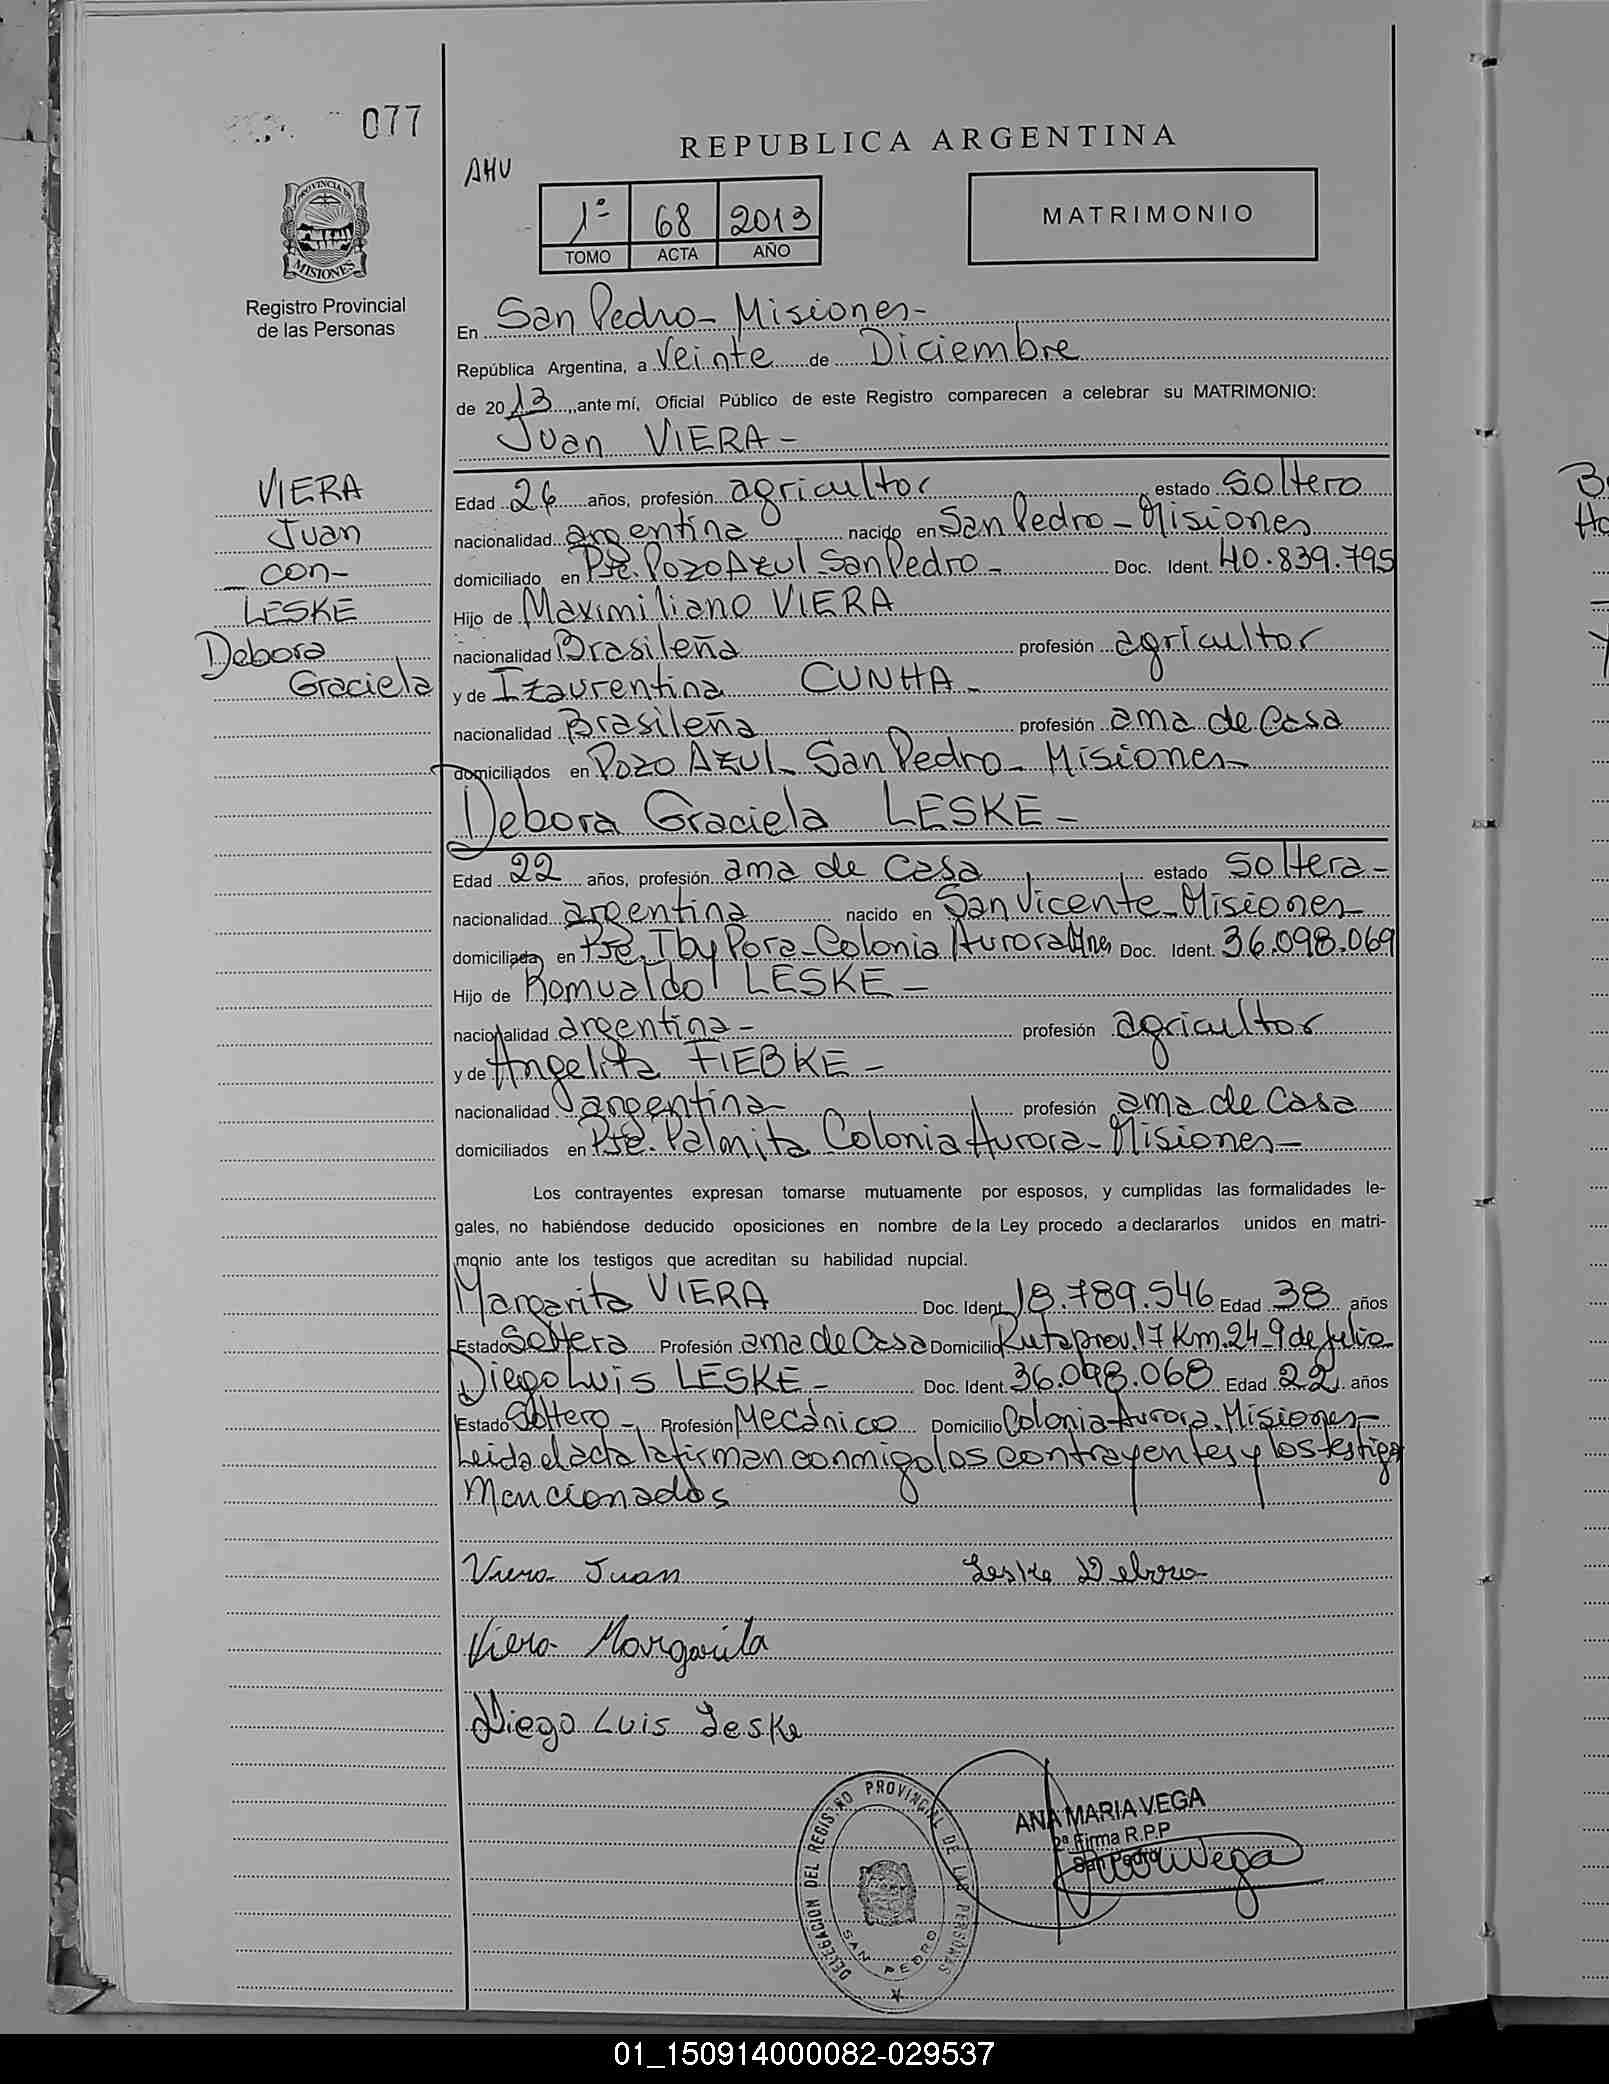 077
REPUBLICA ARGENTINA
AHU
1º 68 2013
TOMO ACTA AÑO
MATRIMONIO
PROVINCIA DE
MISIONES
Registro Provincial
de las Personas
En San Pedro - Misiones -
República Argentina, a Veinte de Diciembre
de 2013, ante mí, Oficial Público de este Registro comparecen a celebrar su MATRIMONIO:
Juan VIERA -
VIERA
Juan
- con -
LESKE
Debora
Graciela
Edad 24 años, profesión agricultor estado Soltero
nacionalidad argentina nacido en San Pedro - Misiones
domiciliado en Pje. Pozo Azul San Pedro - Doc. Ident. 40.839.795
Hijo de Maximiliano VIERA
nacionalidad Brasileña profesión agricultor
y de Izaurentina CUNHA -
nacionalidad Brasileña profesión ama de Casa
domiciliados en Pozo Azul - San Pedro - Misiones -
Debora Graciela LESKE -
Edad 22 años, profesión ama de Casa estado Soltera -
nacionalidad argentina nacido en San Vicente - Misiones -
domiciliada en Pje. Iby Pora - Colonia Aurora Mnes Doc. Ident. 36.098.069
Hijo de Romualdo LESKE -
nacionalidad argentina - profesión agricultor
y de Angelita FIEBKE -
nacionalidad argentina - profesión ama de Casa
domiciliados en Pje. Palmita Colonia Aurora - Misiones -
Los contrayentes expresan tomarse mutuamente por esposos, y cumplidas las formalidades le-
gales, no habiéndose deducido oposiciones en nombre de la Ley procedo a declararlos unidos en matri-
monio ante los testigos que acreditan su habilidad nupcial.
Margarita VIERA Doc. Ident. 18.789.546 Edad 38 años
Estado Soltera Profesión ama de Casa Domicilio Ruta prov. 17 Km. 24 - 9 de Julio
Diego Luis LESKE - Doc. Ident. 36.098.068 Edad 22 años
Estado Soltero - Profesión Mecánico Domicilio Colonia Aurora - Misiones -
Leida el acta la firman conmigo los contrayentes y los testigos
Mencionados
Viera Juan Leske Debora
Viera Margarita
Diego Luis Leske
DELEGACION DEL REGISTRO PROVINCIAL DE LAS PERSONAS
SAN PEDRO
ANA MARIA VEGA
2ª Firma R.P.P
San Pedro
01_150914000082-029537